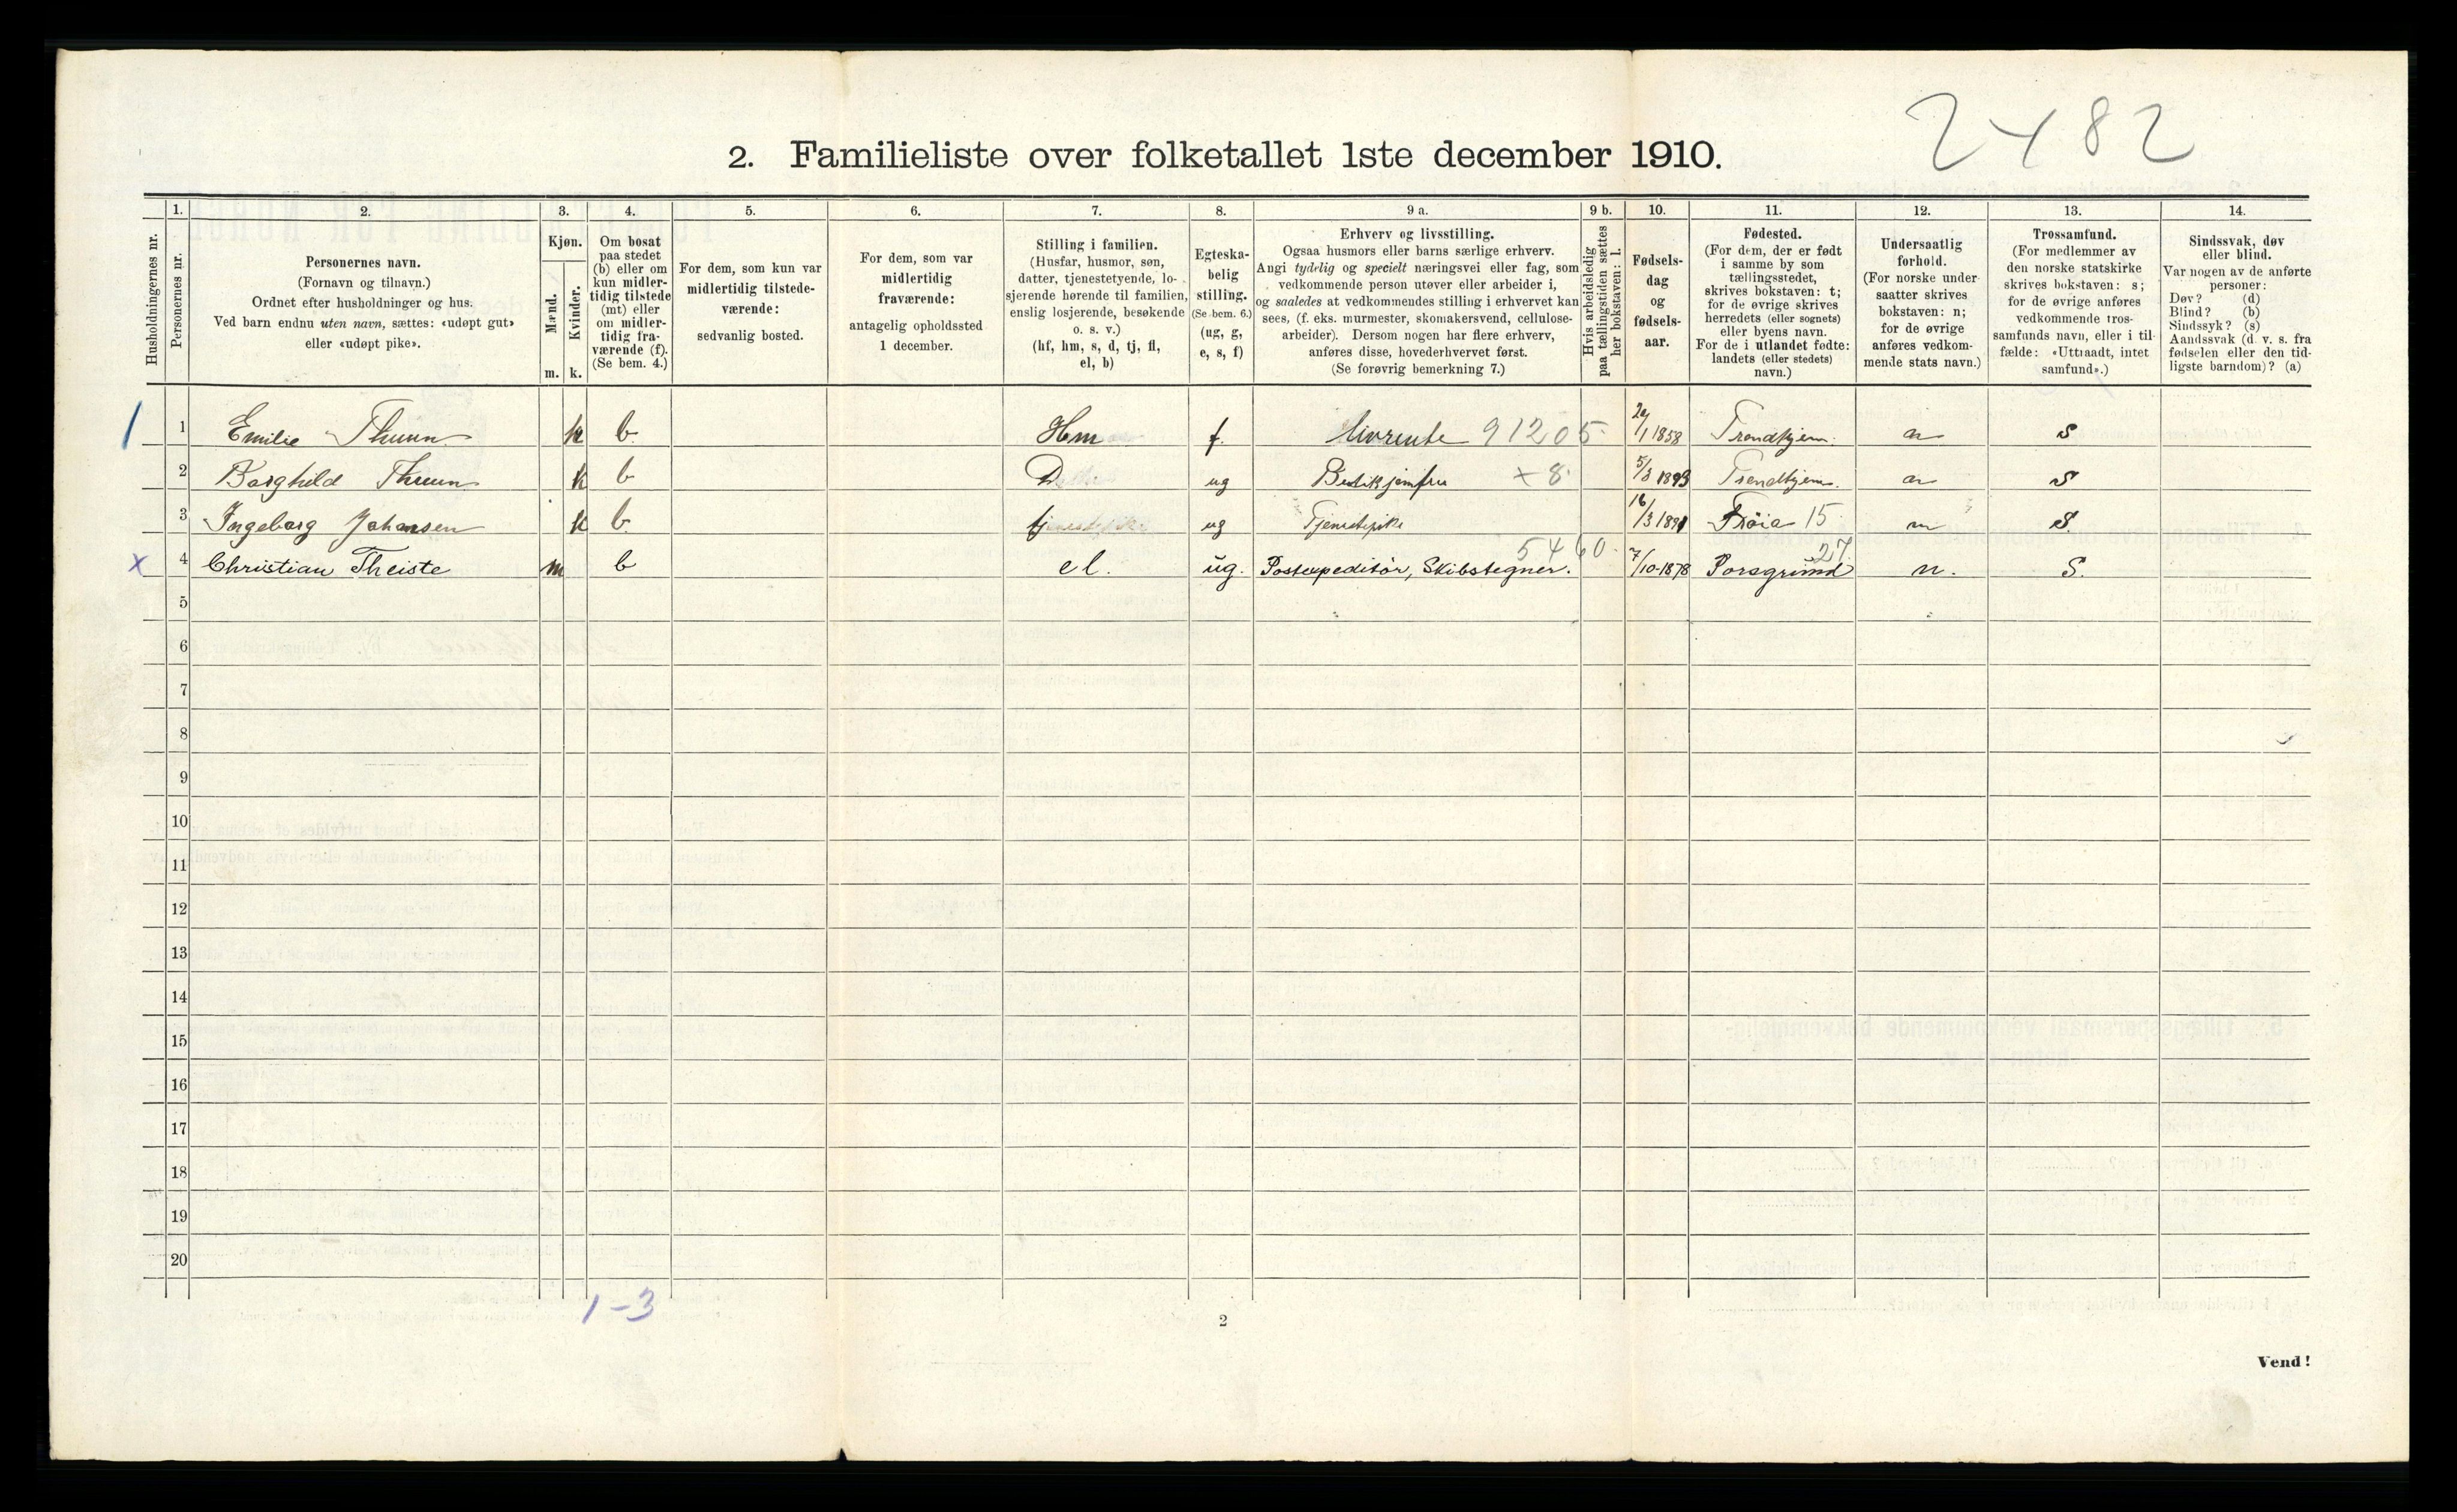 2482
2. Familieliste over folketallet 1ste december 1910.
Husholdningernes nr.
1. Personernes nr.
2. Personernes navn.
(Fornavn og tilnavn.)
Ordnet efter husholdninger og hus.
Ved barn endnu uten navn, sættes: «udøpt gut»
eller «udøpt pike».
3. Kjøn.
Mænd. m.
Kvinder. k.
4. Om bosat
paa stedet
(b) eller om
kun midler-
tidig tilstede
(mt) eller
om midler-
tidig fra-
værende (f).
(Se bem. 4.)
5. For dem, som kun var
midlertidig tilstede-
værende:
sedvanlig bosted.
6. For dem, som var
midlertidig
fraværende:
antagelig opholdssted
1 december.
7. Stilling i familien.
(Husfar, husmor, søn,
datter, tjenestetyende, lo-
sjerende hørende til familien,
enslig losjerende, besøkende
o. s. v.)
(hf, hm, s, d, tj, fl,
el, b)
8. Egteska-
belig
stilling.
(Se bem. 6.)
(ug, g,
e, s, f)
9 a. Erhverv og livsstilling.
Ogsaa husmors eller barns særlige erhverv.
Angi tydelig og specielt næringsvei eller fag, som
vedkommende person utøver eller arbeider i,
og saaledes at vedkommendes stilling i erhvervet kan
sees, (f. eks. murmester, skomakersvend, cellulose-
arbeider). Dersom nogen har flere erhverv,
anføres disse, hovederhvervet først.
(Se forøvrig bemerkning 7.)
9 b. Hvis arbeidsledig
paa tællingstiden sættes
her bokstaven: l.
10. Fødsels-
dag
og
fødsels-
aar.
11. Fødested.
(For dem, der er født
i samme by som
tællingsstedet,
skrives bokstaven: t;
for de øvrige skrives
herredets (eller sognets)
eller byens navn.
For de i utlandet fødte:
landets (eller stedets)
navn.)
12. Undersaatlig
forhold.
(For norske under-
saatter skrives
bokstaven: n;
for de øvrige
anføres vedkom-
mende stats navn.)
13. Trossamfund.
(For medlemmer av
den norske statskirke
skrives bokstaven: s;
for de øvrige anføres
vedkommende tros-
samfunds navn, eller i til-
fælde: «Uttraadt, intet
samfund».)
14. Sindssvak, døv
eller blind.
Var nogen av de anførte
personer:
Døv? (d)
Blind? (b)
Sindssyk? (s)
Aandssvak (d. v. s. fra
fødselen eller den tid-
ligste barndom)? (a)
1 1 Emilie Thuun k b Hm f. Livrente 91205 1858 Trondhjem. n s
2 Borghild Thuun k b D ug Butikjomfru x 8 5/3 1893 Trondhjem. n s
3 Ingeborg Johansen k b tj ug Tjenestepike 16/3 1891 Frøia 15 n s
x 4 Christian Theiste m b el. ug. Postexpeditør, Skibstegner. 5460 7/10-1878 Porsgrund 27 n. S.
5
6
7
8
9
10
11
12
13
14
15
16
17
18
19
20
1-3
2
Vend!